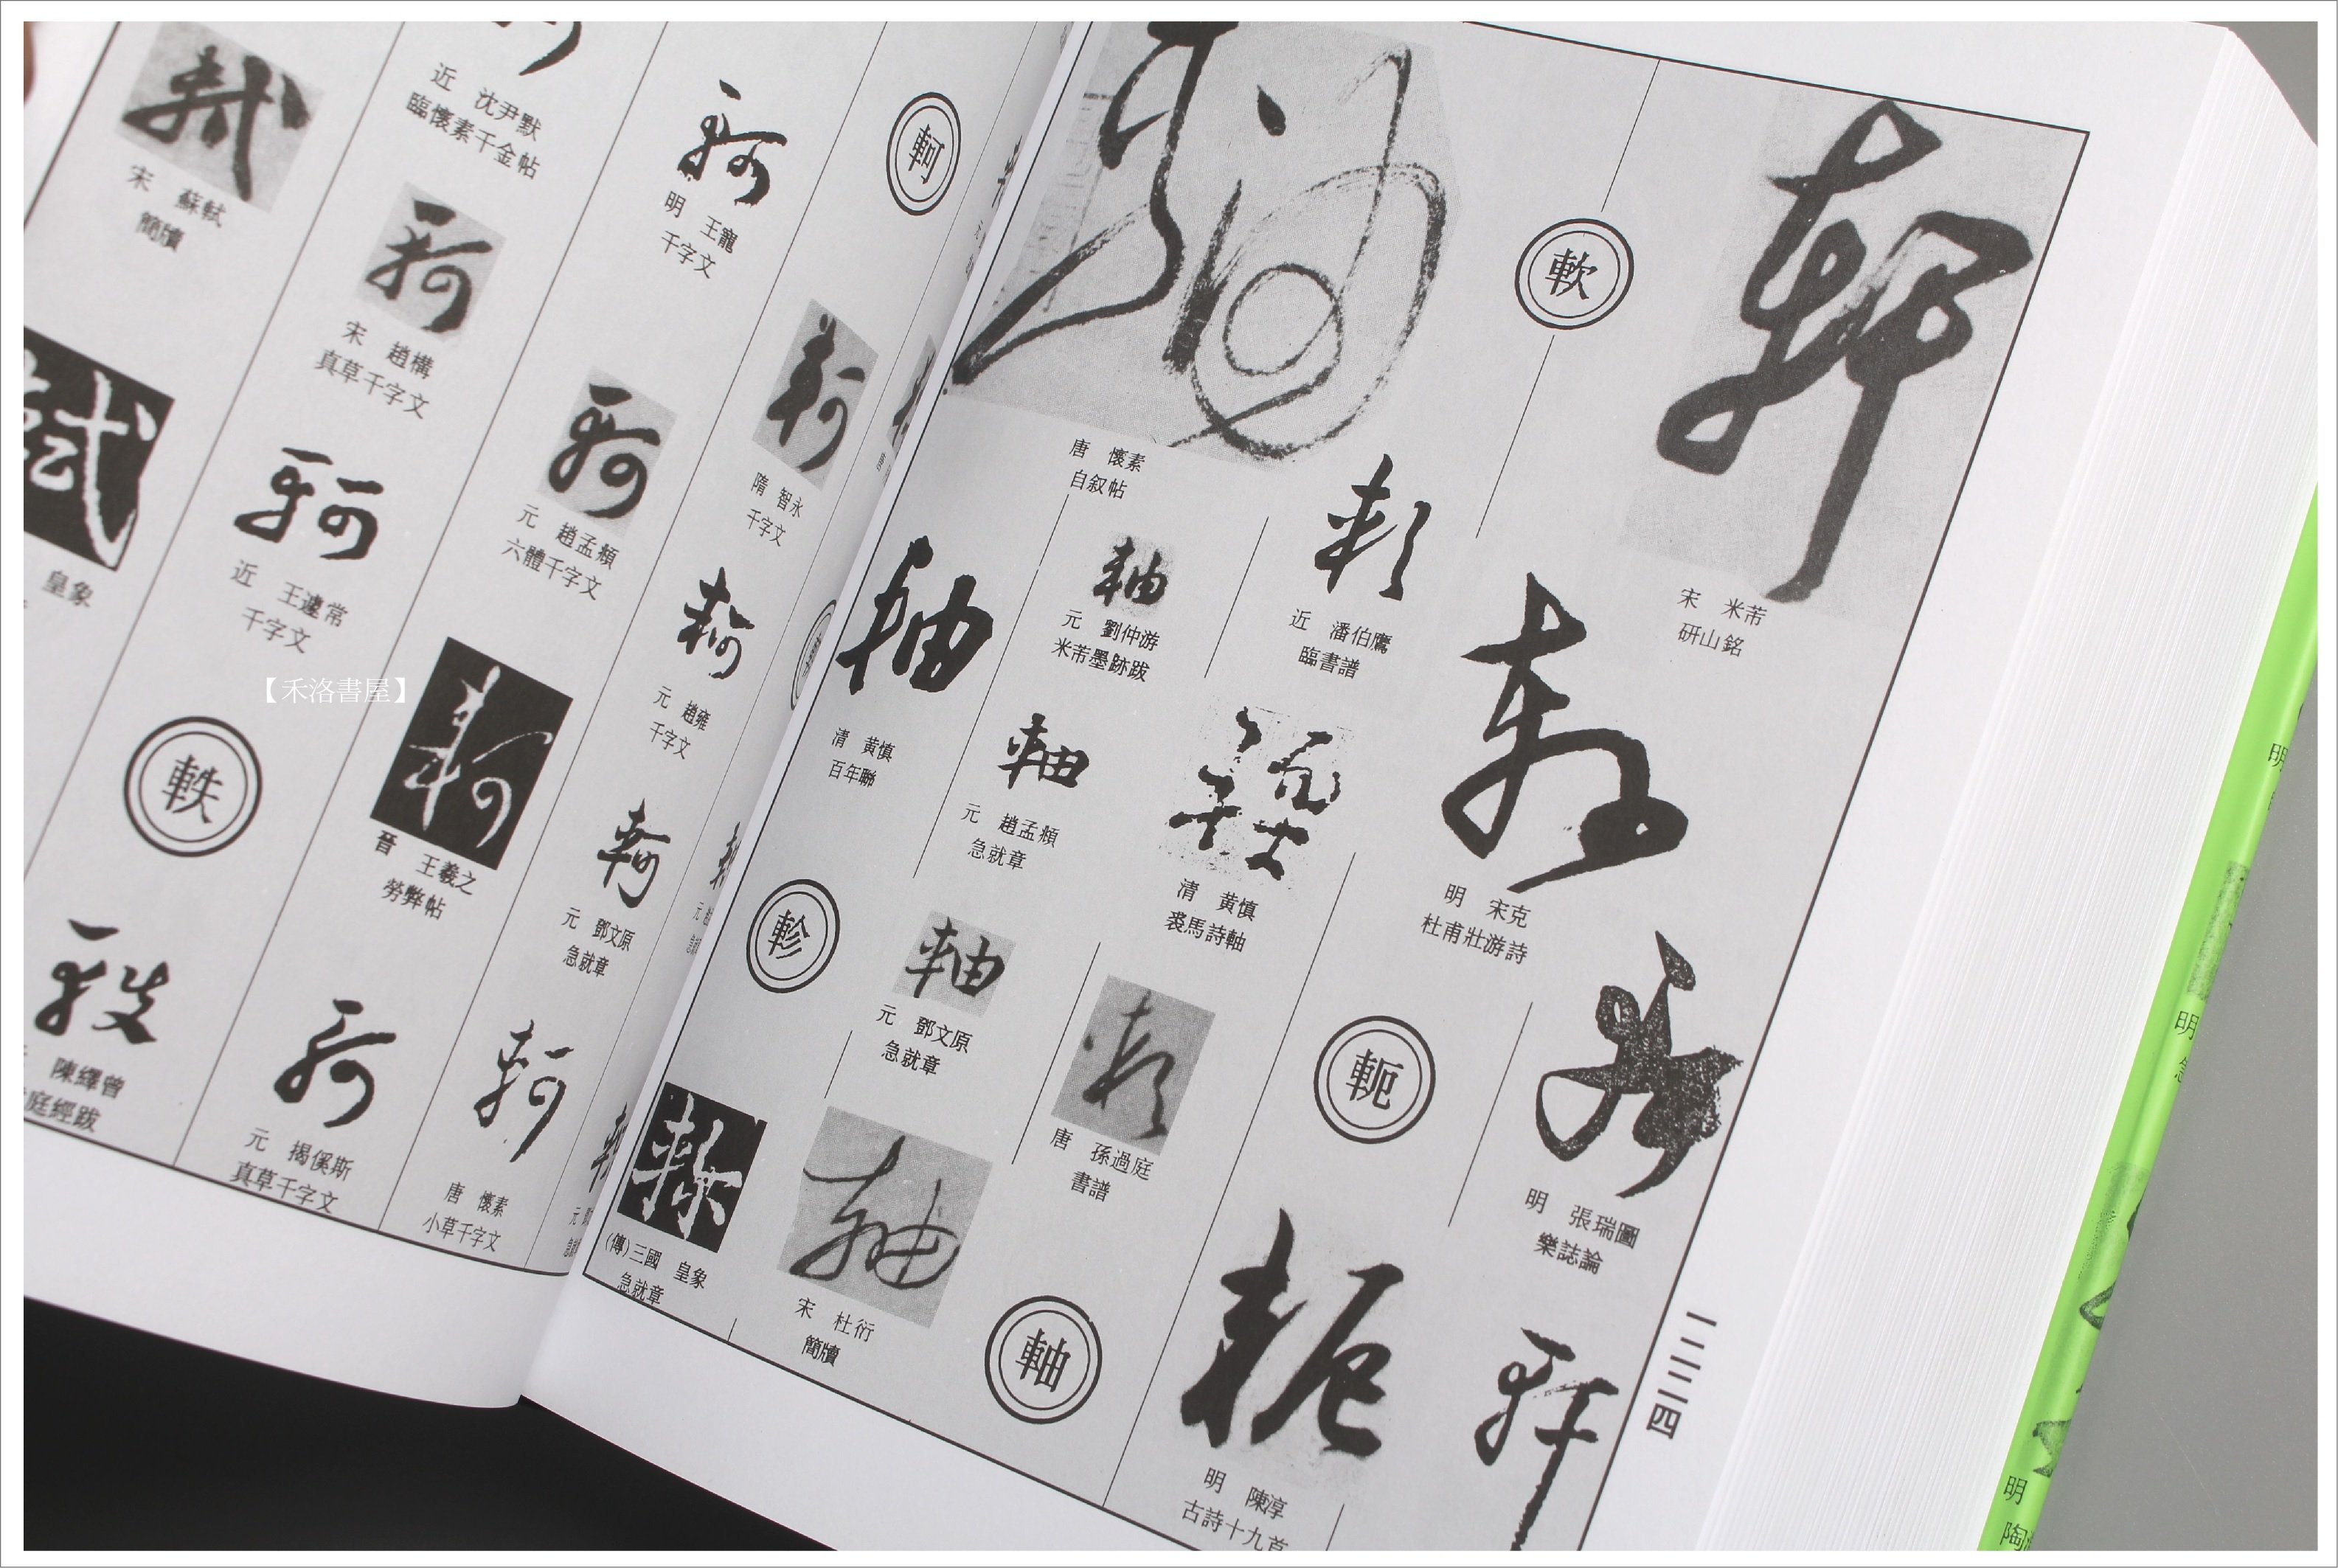 宋 米芾
研山銘
明 宋克
杜甫壯游詩
明 張瑞圖
樂誌論
軟
近 潘伯鷹
臨書譜
清 黄慎
裘馬詩軸
唐 孫過庭
書譜
軛
明 陳淳
古詩十九首
唐 懷素
自叙帖
元 劉仲游
米芾墨跡跋
元 趙孟頫
急就章
元 鄧文原
急就章
宋 杜衍
簡牘
軸
清 黄慎
百年聯
軫
(傳)三國 皇象
急就章
一二三四
軻
隋 智永
千字文
元 趙雍
千字文
元 鄧文原
急就章
唐 懷素
小草千字文
明 王寵
千字文
元 趙孟頫
六體千字文
晉 王羲之
勞弊帖
元 揭傒斯
真草千字文
近 沈尹默
臨懷素千金帖
宋 趙構
真草千字文
近 王蘧常
千字文
軼
陳繹曾
庭經跋
宋 蘇軾
簡牘
皇象
【禾洛書屋】
明
明
明